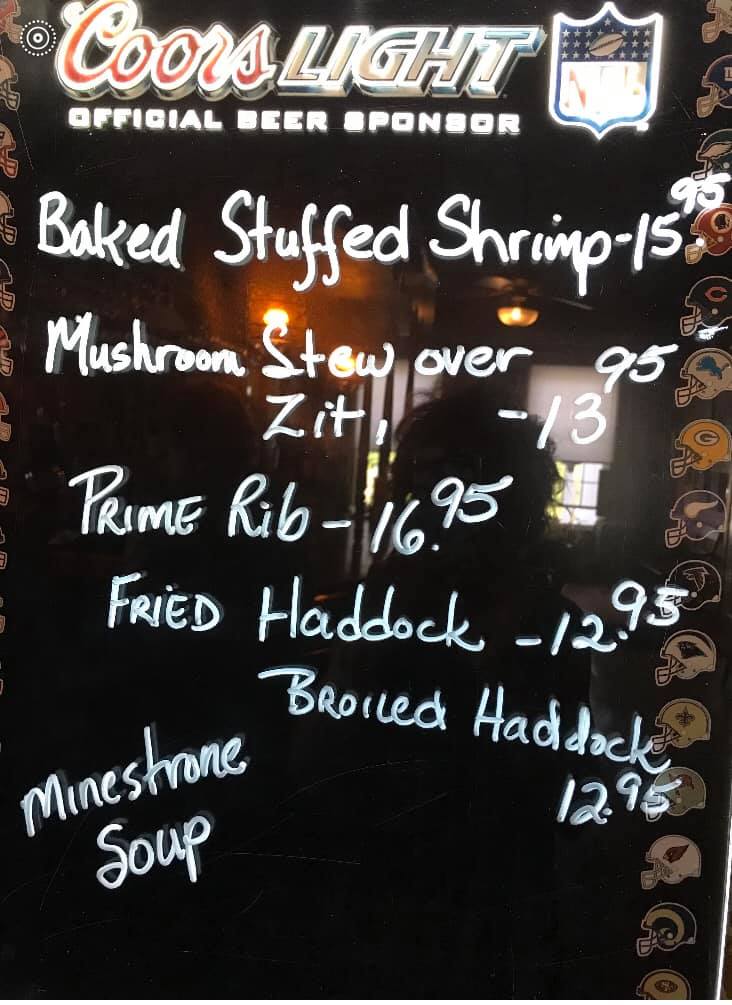 Coors LIGHT NFL
OFFICIAL BEER SPONSOR
Baked Stuffed Shrimp - 15.95
Mushroom Stew over
Ziti - 13 95
PRIME Rib - 16.95
FRIED Haddock - 12.95
BROILED Haddock
12.95
Minestrone
Soup